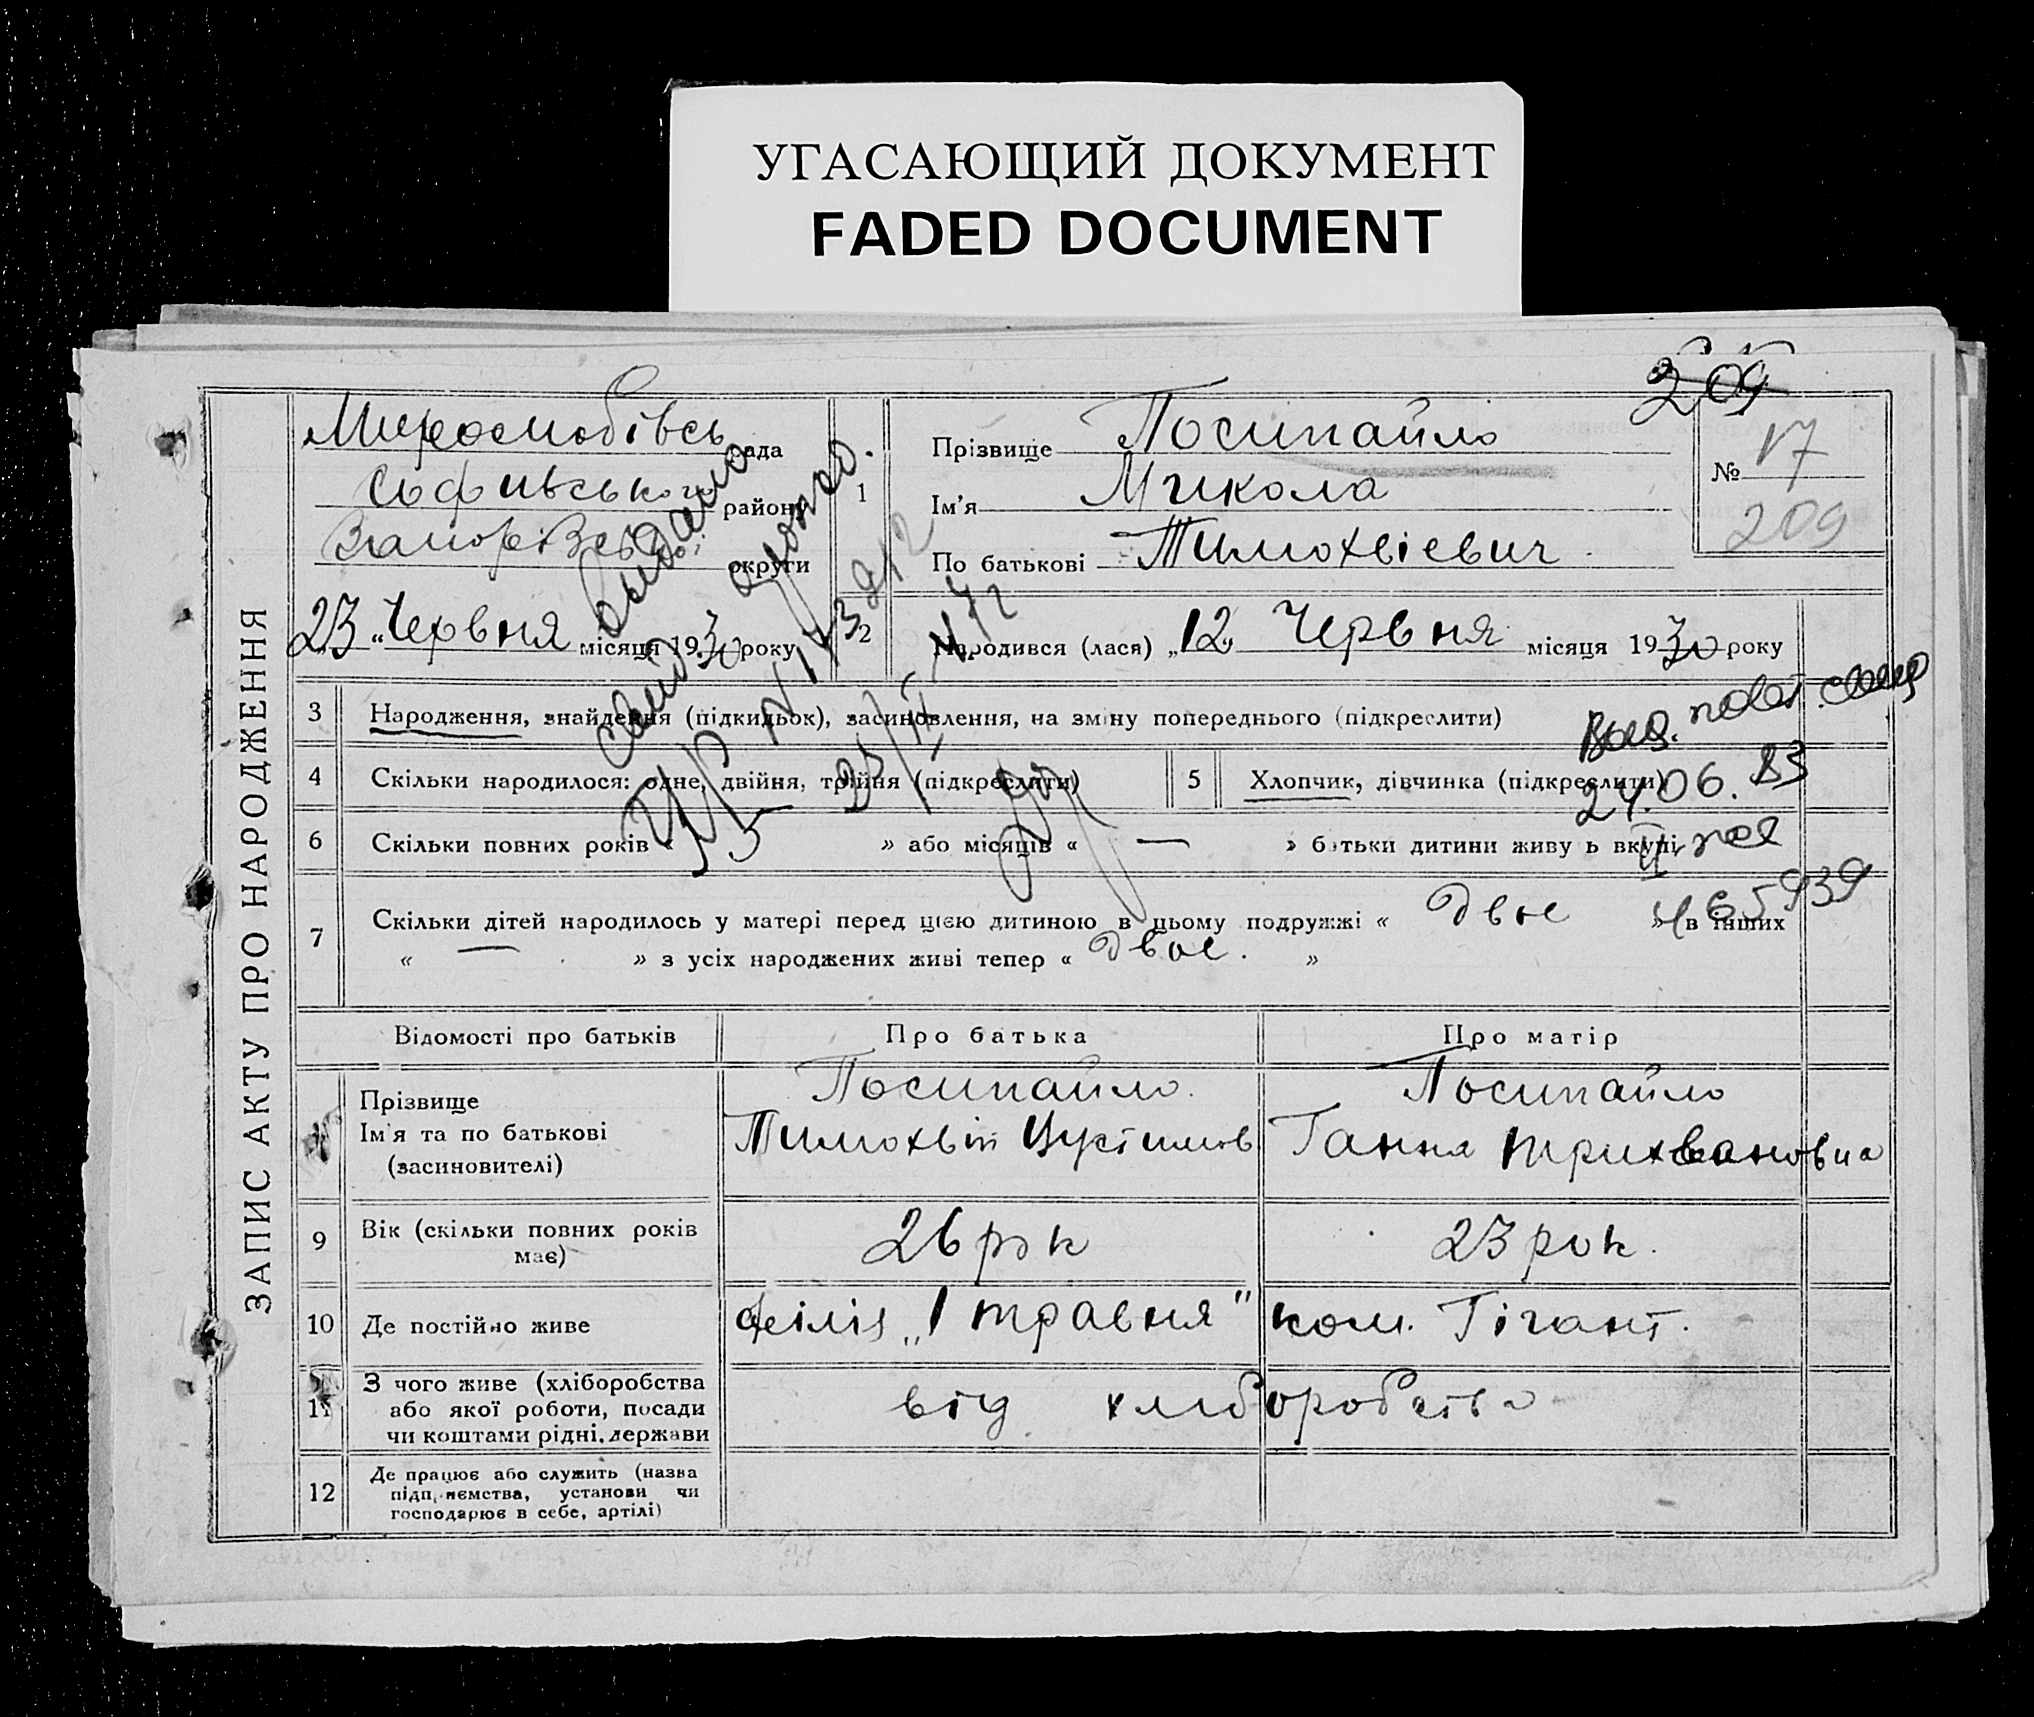 УГАСАЮЩИЙ ДОКУМЕНТ
FADED DOCUMENT
209
ЗАПИС АКТУ ПРО НАРОДЖЕННЯ
рада
Софиівського району
округи
23 „ Червня місяця 1930 року
1
Прізвище Посипайло
Ім'я Микола
По батькові Тимохвієвич
№ 17
209
2
Народився (лася) „12„ Червня місяця 1930 року
3 Народження, знайдення (підкидьок), засиновлення, на зміну попереднього (підкреслити)
4 Скільки народилося: одне, двійня, трійня (підкреслити)
5 Хлопчик, дівчинка (підкреслити)
24.06.83
6 Скільки повних років « 5 » або місяців « — » батьки дитини живу ь вкупі
7 Скільки дітей народилось у матері перед цією дитиною в цьому подружжі « двое » в інших
« — » з усіх народжених живі тепер « двое. »
465939
Відомості про батьків
Про батька
Про матір
Прізвище
Ім'я та по батькові
(засиновителі)
Посипайло.
Тимохвій
Посипайло
Ганна
9 Вік (скільки повних років має)
26 рок
23 рок.
10 Де постійно живе
філія „1 травня"
ком. Гігант.
11 З чого живе (хліборобства
або якої роботи, посади
чи коштами рідні, держави
від хліборобства
12 Де працює або служить (назва
підприємства, установи чи
господарює в себе, артілі)